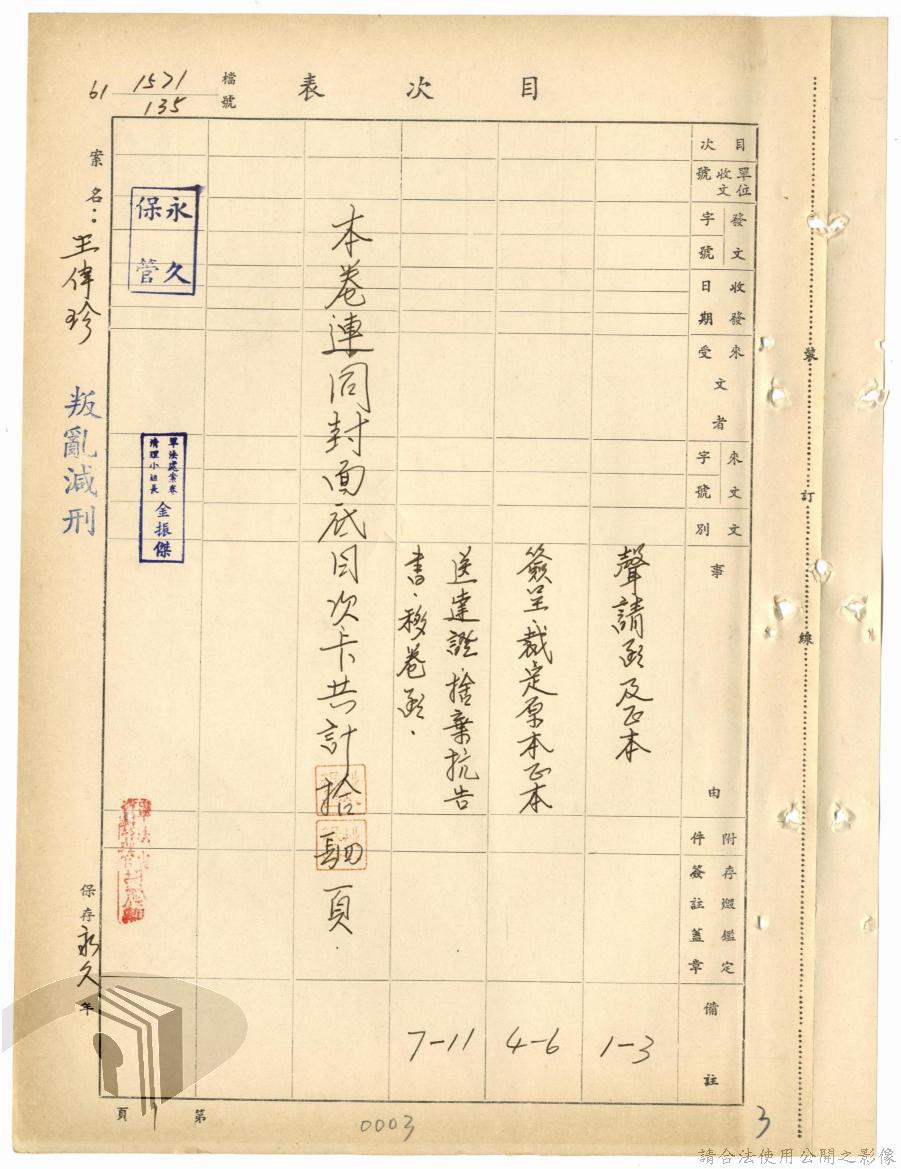 目次表
檔號
1571
135
61
目次
單位收文號
發文字號
收發日期
來文受文者
來文字號
文別
事由
附件
存燬鑑定簽註蓋章
備註
聲請函及正本
1-3
簽呈、裁定原本正本
4-6
送達證、捨棄抗告
書、移卷函.
7-11
本卷連同封面底目次卡共計拾肆頁.
永久
保管
軍法處案卷
清理小組長
金振傑
案名：王偉珍 叛亂減刑
保存永久年
裝訂線
第1頁
0003
3
請合法使用公開之影像